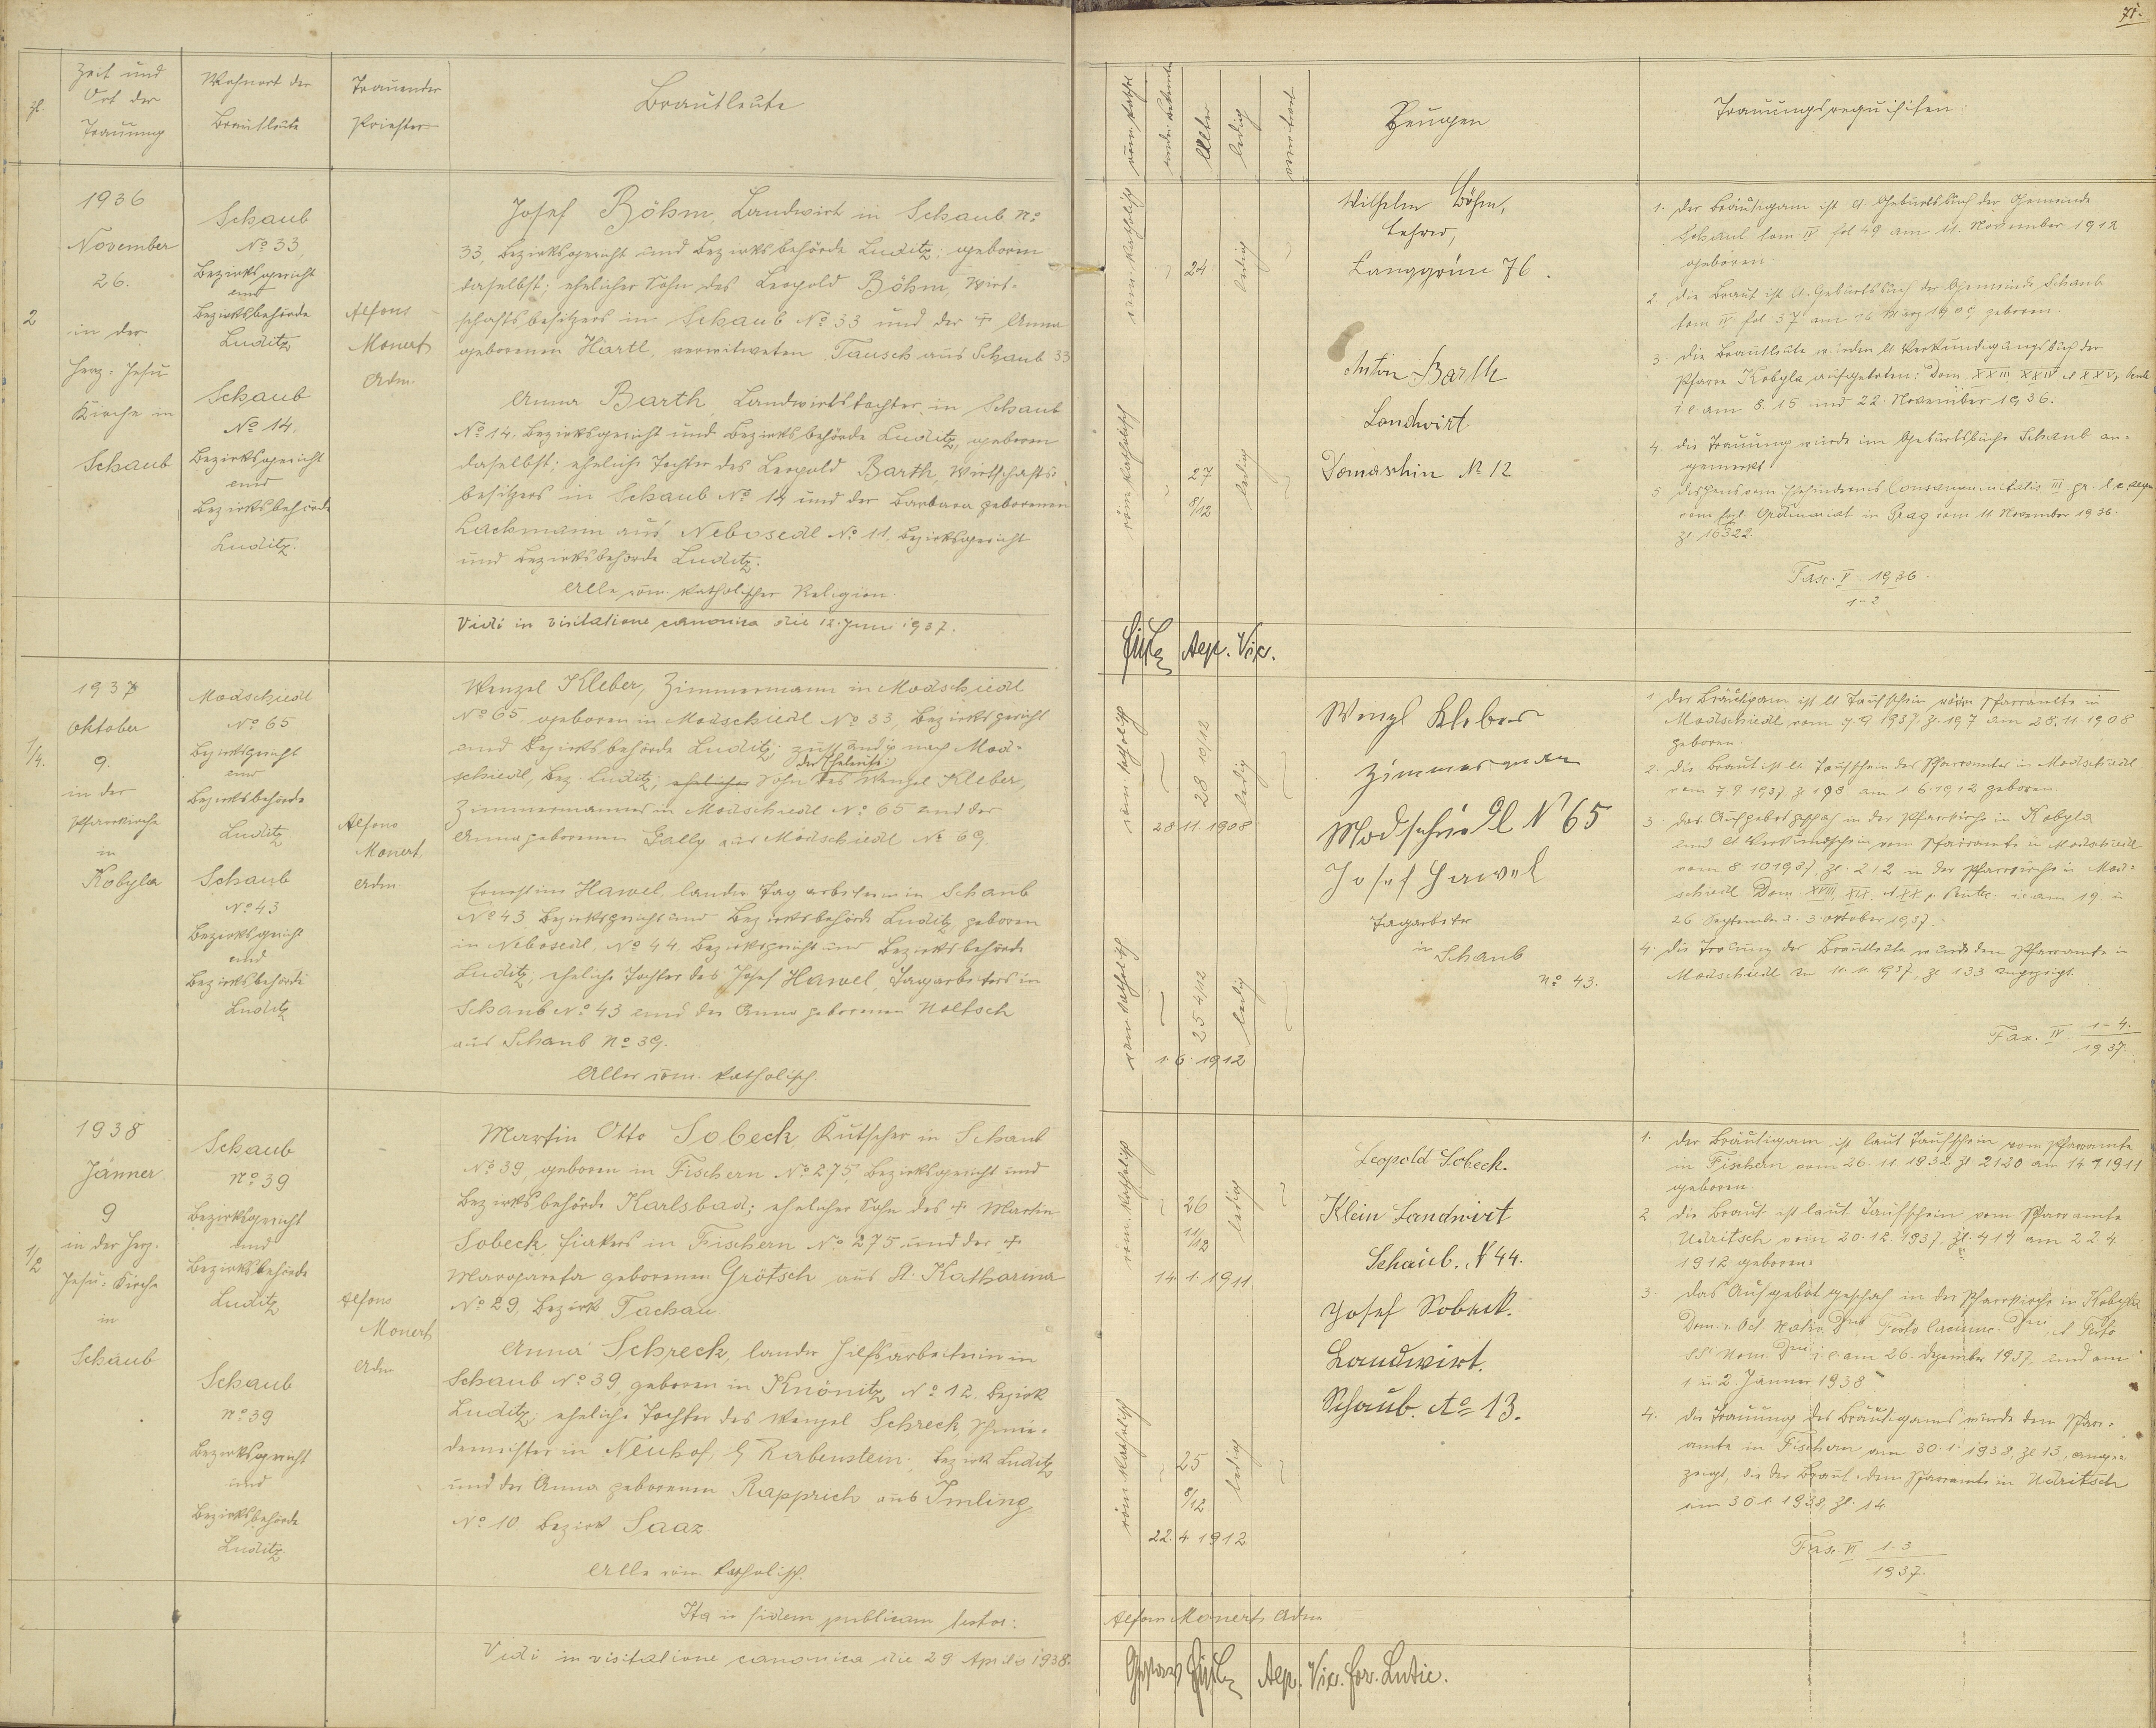 71.
Zl.
Zeit und
Ort der
Trauung
Wohnort der
Brautleute
Trauender
Priester
Brautleute
röm. kathol.
Alter
ledig
verwitwet
Zeugen
Trauungsrequisiten:
2
1936
November
26.
in der
Herz-Jesu
Kirche in
Schaub
Schaub
No 33,
Bezirksgericht
und
Bezirksbehörde
Luditz
Schaub
No 14.
Bezirksgericht
und
Bezirksbehörde
Luditz.
Alfons
Monert
Adm.
Josef Böhm, Landwirt in Schaub No
33, Bezirksgericht und Bezirksbehörde Luditz; geboren
daselbst; ehelicher Sohn des Leopold Böhm, Wirt-
schaftsbesitzers in Schaub No 33 und der + Anna
geborenen Härtl, verwitweten Tausch aus Schaub 33
Anna Barth, Landwirtstochter in Schaub
No 14, Bezirksgericht und Bezirksbehörde Luditz, geboren
daselbst; eheliche Tochter des Leopold Barth, Wirtschafts-
besitzers in Schaub No 14 und der Barbara geborenen
Lackmann aus Nebosedl No 11, Bezirksgericht
und Bezirksbehörde Luditz.
Alle röm. katholischer Religion.
Vidi in visitatione canonica die 12. Juni 1937.
röm. katholisch
24
ledig
röm. katholisch
27
8/12
ledig
Wilhelm Böhm,
Lehrer,
Langgrün 76.
Anton Barth
Landwirt
Domaschin No 12
1. Der Bräutigam ist lt. Geburtsbuch der Gemeinde
Schaub tom IV. fol 49 am 11. November 1912
geboren.
2. Die Braut ist lt. Geburtsbuch der Gemeinde Schaub
tom IV fol 37 am 26 März 1909 geboren.
3. Die Brautleute wurden lt Verkündigungsbuch der
Pfarre Kobyla aufgeboten: Dom. XXIII XXIV et XXV,
i. e am 8. 15 und 22. November 1936.
4. Die Trauung wurde im Geburtsbuche Schaub an-
gemerkt.
5 Dispens vom Ehehindernis Consanguinitatis III gr.
vom Ordinariat in Prag vom 11 November 1936.
Zl 16522.
Fasc. V. 1936.
1-2
Aep. Vic.
1/4.
1937
Oktober
9.
in der
Pfarrkirche
in
Kobyla
Modschiedl
No 65
Bezirksgericht
und
Bezirksbehörde
Luditz
Schaub
No 43
Bezirksgericht
und
Bezirksbehörde
Luditz
Alfons
Monert,
Adm
Wenzel Kleber, Zimmermann in Modschiedl
No 65, geboren in Modschiedl No 33, Bezirksgericht
und Bezirksbehörde Luditz; zuständig nach Mod-
schiedl, Bez. Luditz; ehelicher Sohn des Wenzel Kleber,
Zimmermannes in Modschiedl No 65 und der
Anna geborenen Gally aus Modschiedl No 69.
Ernestine Hawel, landw Tagarbeiterin in Schaub
No 43 Bezirksgericht und Bezirksbehörde Luditz geboren
in Nebosedl, No 44. Bezirksgericht und Bezirksbehörde
Luditz, eheliche Tochter des Josef Hawel, Tagarbeiters in
Schaub No 43 und der Anna geborenen Noltsch
aus Schaub No 39.
Alles röm. katholisch
röm. katholisch
28 10/12
ledig
28 11. 1908
röm. katholisch
25 4/12
ledig
1. 6. 1912
Wenzl Kleber
Zimmermann
Modschiedl No 65
Josef Hawel
Tagarbeiter
in Schaub
No 43.
1 Der Bräutigam ist lt Taufschein vom Pfarramte in
Modschiedl vom 7 9 1937 Z. 197 am 28. 11 1908
geboren.
2. Die Braut ist lt. Taufschein des Pfarramtes in Modschiedl
vom 7 9 1937, Z 198 am 1. 6. 1912 geboren.
3. Das Aufgebot geschah in der Pfarrkirche in Kobyla
und lt Verkündschein vom Pfarramte in Modschiedl
vom 8 10 1937, Zl. 212 in der Pfarrkirche in Mod-
schiedl Dom. XVIII, XIX. et XX p. Pentec. i.e am 19. u
26 September u. 3. Oktober 1937.
4. Die Trauung der Brautleute wurde dem Pfarramte in
Modschiedl am 1937, Zl 133 angezeigt.
Fax. IV 1-4.
1937.
1/2
1938
Jänner
9
in der Herz-
Jesu-Kirche
in
Schaub
Schaub
No 39
Bezirksgericht
und
Bezirksbehörde
Luditz
Schaub
No 39
Bezirksgericht
und
Bezirksbehörde
Luditz
Alfons
Monert
Adm
Martin Otto Sobeck, Kutscher in Schaub
No 39, geboren in Fischern No 275, Bezirksgericht und
Bezirksbehörde Karlsbad; ehelicher Sohn des + Martin
Sobeck, Fiakers in Fischern No 275 und der +
Margareta geborenen Grötsch aus St. Katharina
No 29, Bezirk Tachau
Anna Schreck, landw Hilfsarbeiterin in
Schaub No 39, geboren in Knönitz No 12. Bezirk
Luditz; eheliche Tochter des Wenzel Schreck, Schmie-
demeister in Neuhof, G Rabenstein, Bezirk Luditz
und der Anna geborenen Rapprich aus Imling,
No 10 Bezirk Saaz
Alle röm. katholisch.
Ita in fidem publicam testor:
Vidi in visitatione canonica die 29 Aprilis 1938.
röm. katholisch
26
11/12
ledig
14. 1. 1911
röm. katholisch
25
8/12
ledig
22. 4 1912
Leopold Sobeck.
Klein Landwirt
Schaub. N 44.
Josef Sobeck.
Landwirt.
Schaub. No 13.
1. Der Bräutigam ist laut Taufschein vom Pfarramte
in Fischern vom 26. 11 1932. Zl 2120 am 14 1. 1911
geboren
2 Die Braut ist laut Taufschein vom Pfarramte
Udritsch vom 20. 12. 1937. Zl. 414 am 22 4
1912 geboren.
3. Das Aufgebot geschah in der Pfarrkirche in Kobyla
Dom. Festo Circumc. Dni, et Festo
SS Nom. i. e. am 26. Dezember 1937, und am
1 u 2. Jänner 1938
4. Die Trauung des Bräutigams wurde dem Pfarr-
amte in Fischern am 30. 1. 1938, Zl 13, ange-
zeigt, die der Braut dem Pfarramte in Udritsch
am 30 1. 1938, Zl. 14
Fasc. VI 1-3
1937.
Alfons Monert Adm
Aep. Vic. for. Lutic.